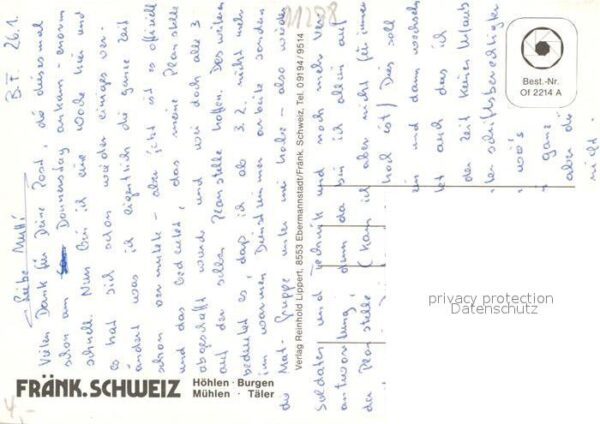 B.F. 26.1.
Liebe Mutti
Vielen Dank für Deine Post, die diesesmal
schon am Donnerstag ankam - enorm
schnell. Nun bin ich eine Woche hier und
es hat sich schon wieder einiges ver-
ändert was ich eigentlich die ganze Zeit
schon vermutete - aber jetzt ist es offiziell
und das bedeutet, das meine Planstelle
abgeschafft wurde und wir doch alle 3
auf der selben Planstelle hocken. Des weiteren
bedeutet es, daß ich ab 3.2. nicht mehr
im warmen Dienstzimmer arbeite sondern
die Mat-Gruppe unter mir habe - also wieder
Soldaten und Technik und noch mehr Ver-
antwortung, denn da bin ich allein auf
der Planstelle (kann ich aber nicht für immer
hoch ist) Dies soll
und dann wechseln
auch das ich
der Zeit keinen Urlaub
schriftsberechtigter
wo's
ganz
aber die
nicht.
11278
Best.-Nr.
Of 2214 A
Verlag Reinhold Lippert, 8553 Ebermannstadt/Fränk. Schweiz, Tel. 0 91 94 / 95 14
privacy protection
Datenschutz
FRÄNK. SCHWEIZ
Höhlen · Burgen
Mühlen · Täler
4,-